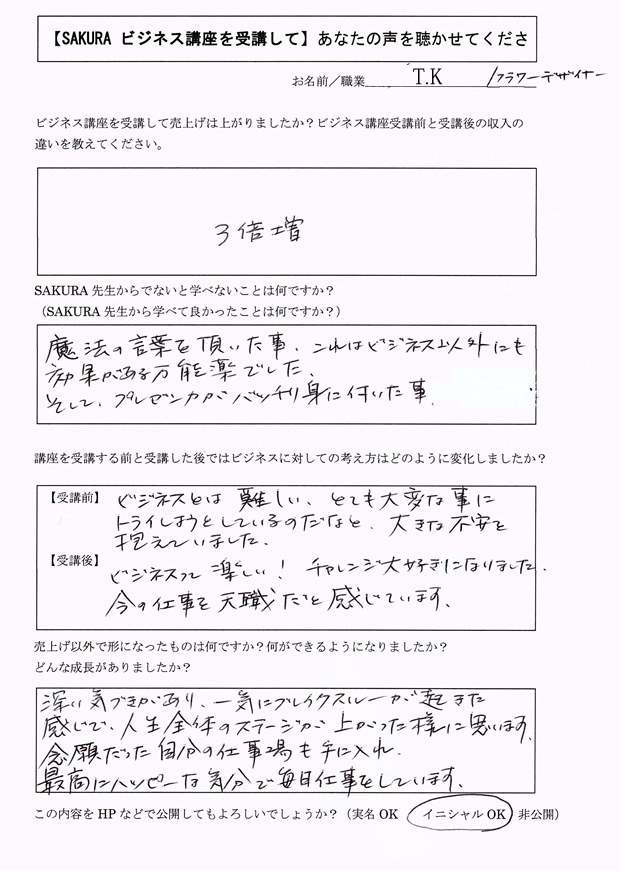 【SAKURA ビジネス講座を受講して】あなたの声を聴かせてくださ
お名前／職業 T.K /フラワーデザイナー
ビジネス講座を受講して売上げは上がりましたか？ビジネス講座受講前と受講後の収入の
違いを教えてください。
3倍増
SAKURA 先生からでないと学べないことは何ですか？
（SAKURA 先生から学べて良かったことは何ですか？）
魔法の言葉を頂いた事、これはビジネス以外にも
効果がある万能薬でした。
そして、プレゼン力がバッチリ身に付いた事
講座を受講する前と受講した後ではビジネスに対しての考え方はどのように変化しましたか？
【受講前】 ビジネスとは 難しい、とても大変な事に
トライしようとしているのだなと、大きな不安を
抱えていました。
【受講後】 ビジネスって 楽しい！ チャレンジ大好きになりました。
今の仕事を天職だと感じています。
売上げ以外で形になったものは何ですか？何ができるようになりましたか？
どんな成長がありましたか？
深い気づきがあり、一気にブレイクスルーが起きた
感じで、人生全体のステージが上がった様に思います。
念願だった自分の仕事場も手に入れ、
最高にハッピーな気分で毎日仕事をしています。
この内容を HP などで公開してもよろしいでしょうか？（実名 OK イニシャル OK 非公開）